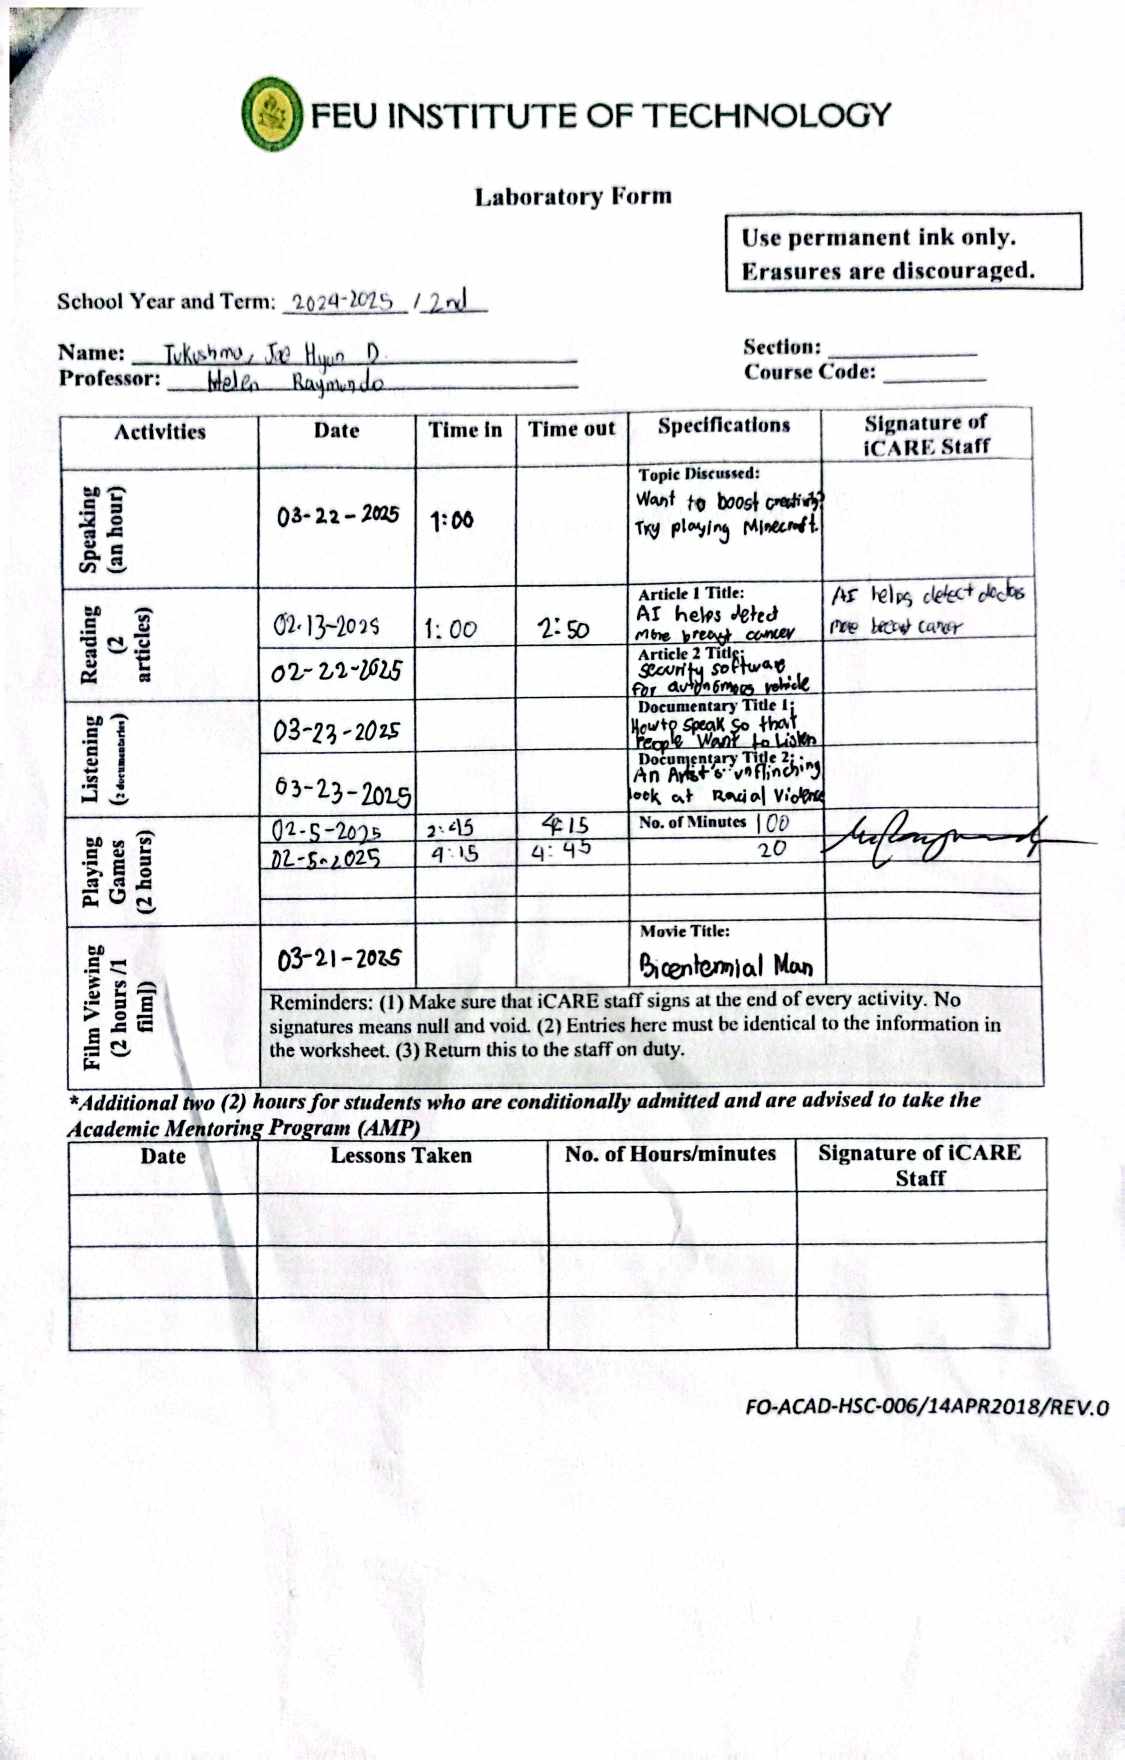 FEU INSTITUTE OF TECHNOLOGY
Laboratory Form
Use permanent ink only.
Erasures are discouraged.
School Year and Term: 2024-2025 / 2nd
Name: Hyun D.
Section:
Professor: Helen Raymundo
Course Code:
Activities Date Time in Time out Specifications Signature of iCARE Staff
Speaking (an hour)
03-22-2025 1:00
Topic Discussed:
Want to boost creativity?
Try playing Minecraft.
Reading (2 articles)
02-13-2025 1:00 2:50
Article 1 Title:
AI helps detect
more breast cancer
AI helps detect doctors
more breast cancer
02-22-2025
Article 2 Title:
security software
for autonomous vehicle
Listening (2 documentaries)
03-23-2025
Documentary Title 1:
How to Speak so that
People Want to Listen
03-23-2025
Documentary Title 2:
An Artist's unflinching
look at Racial Violence
Playing Games (2 hours)
02-5-2025 2:45 4:15 No. of Minutes 100
02-5-2025 4:15 4:45 20
Film Viewing (2 hours /1 film])
03-21-2025
Movie Title:
Bicentennial Man
Reminders: (1) Make sure that iCARE staff signs at the end of every activity. No
signatures means null and void. (2) Entries here must be identical to the information in
the worksheet. (3) Return this to the staff on duty.
*Additional two (2) hours for students who are conditionally admitted and are advised to take the
Academic Mentoring Program (AMP)
Date Lessons Taken No. of Hours/minutes Signature of iCARE Staff
FO-ACAD-HSC-006/14APR2018/REV.0